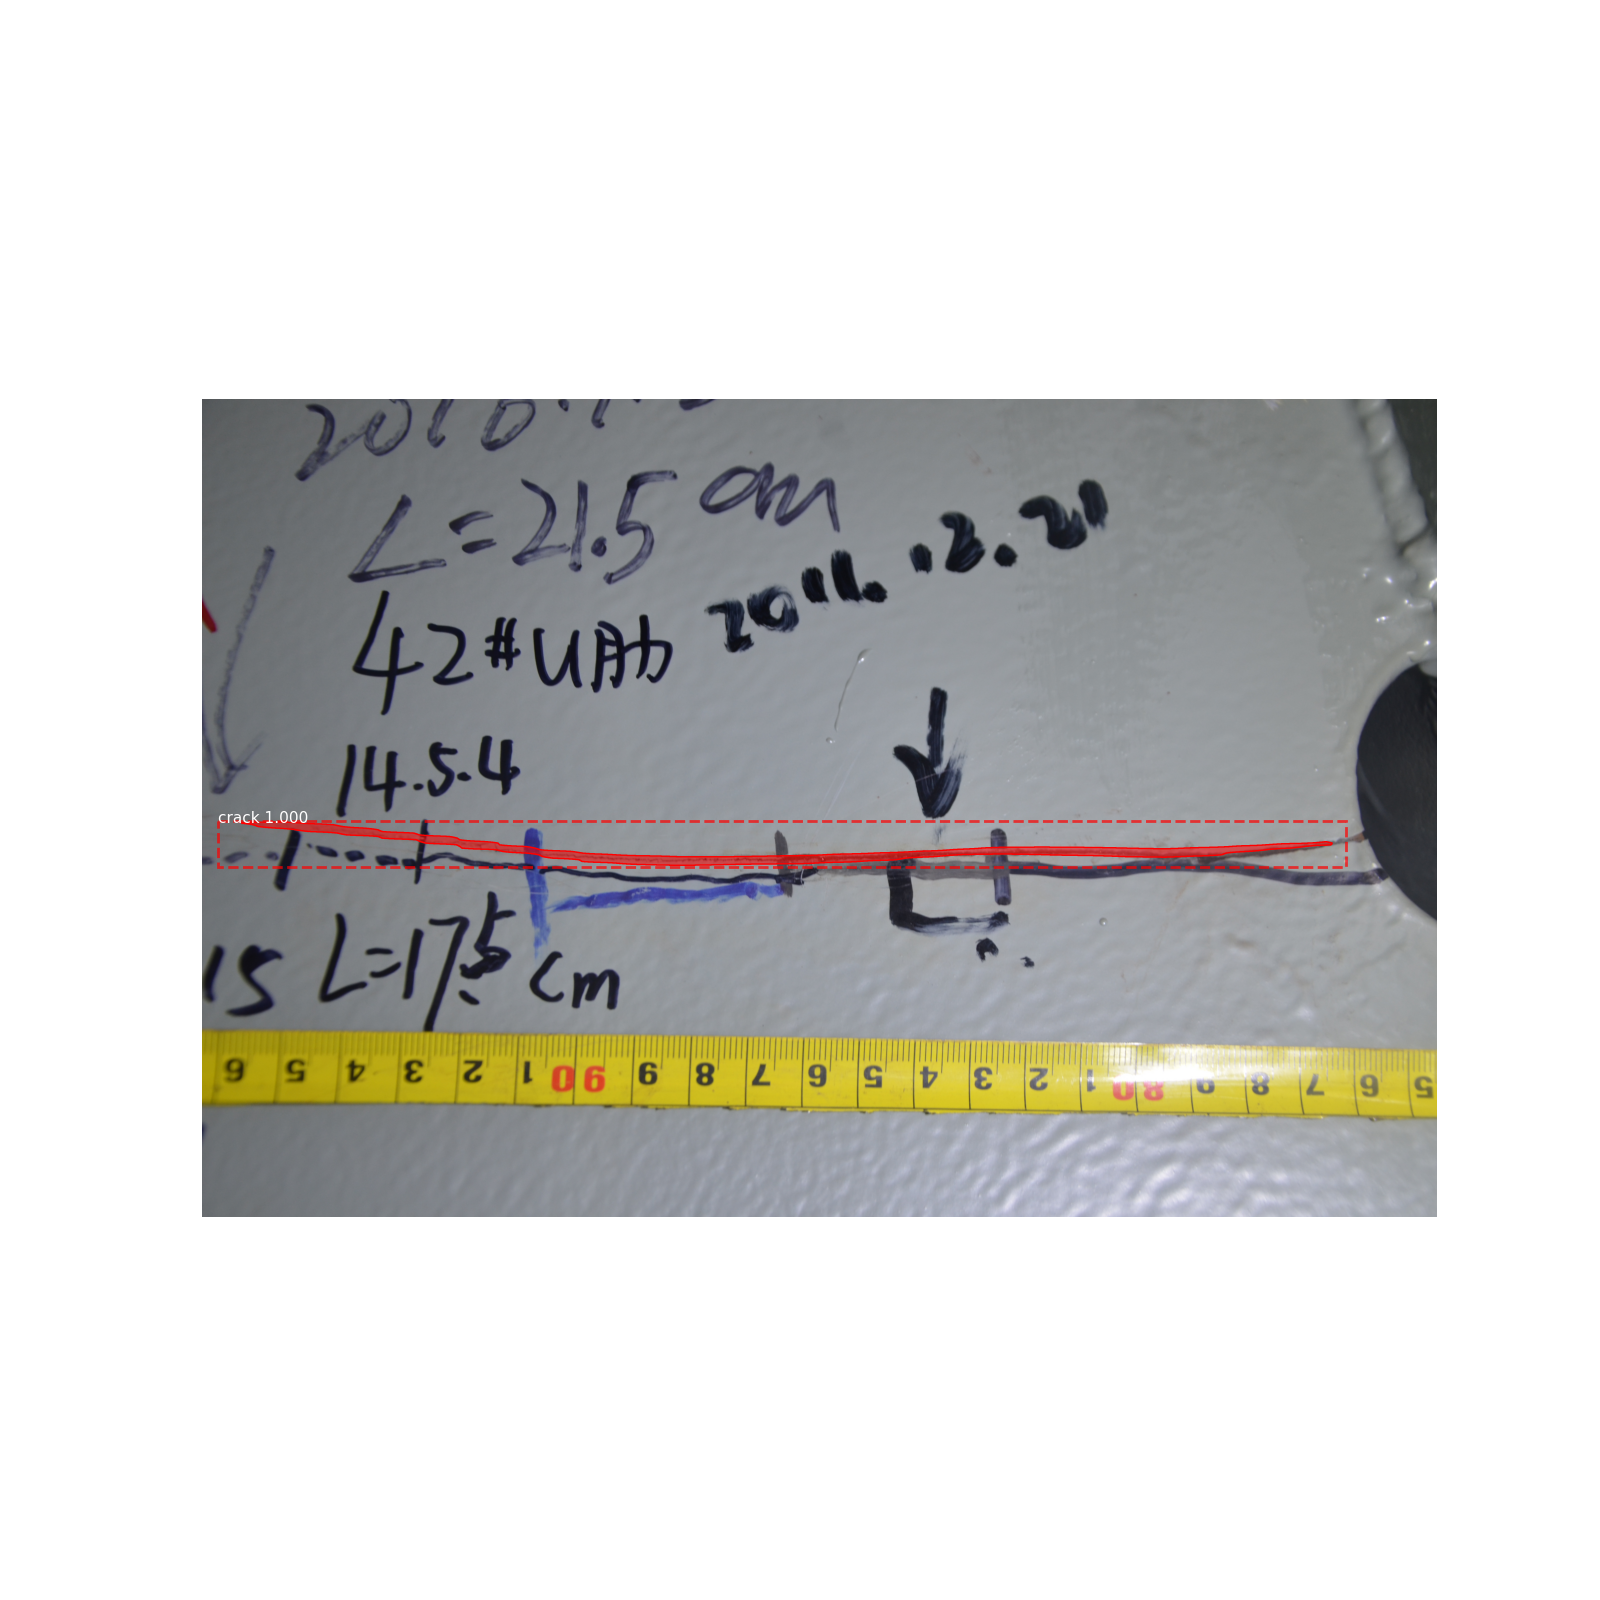 L=21.5cm
2011.12.21
42#U肋
14.5.4
crack 1.000
15 L=17.5cm
6 5 4 3 2 1 90 9 8 7 6 5 4 3 2 1 80 9 8 7 6 5